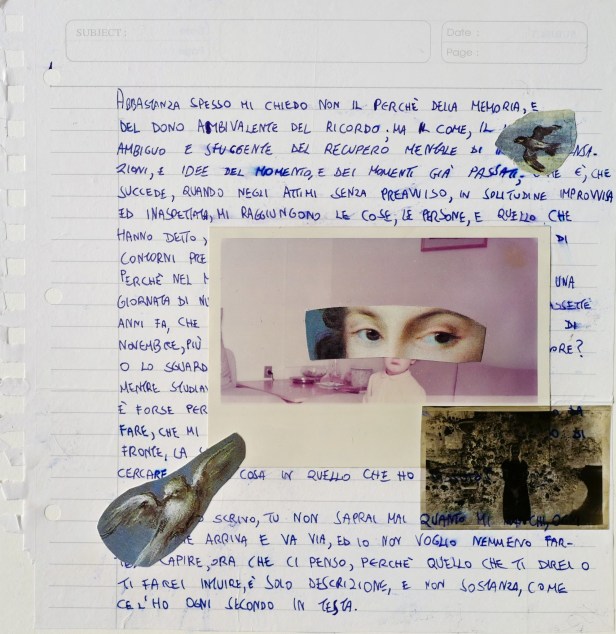 SUBJECT:
Date :
Page :
ABBASTANZA SPESSO MI CHIEDO NON IL PERCHÈ DELLA MEMORIA, E
DEL DONO AMBIVALENTE DEL RICORDO; MA IL COME, IL
AMBIGUO E SFUGGENTE DEL RECUPERO MENTALE DI
ZIONI, E IDEE DEL MOMENTO, E DEI MOMENTI GIÀ PASSATI, È, CHE
SUCCEDE, QUANDO NEGLI ATTIMI SENZA PREAVVISO, IN SOLITUDINE IMPROVVISA
ED INASPETTATA, MI RAGGIUNGONO LE COSE, LE PERSONE, E QUELLO CHE
HANNO DETTO, DI
CONTORNI PRE
PERCHÈ NEL UNA
GIORNATA DI
ANNI FA, CHE DI
NOVEMBRE, PIÙ ORE?
O LO SGUARD
MENTRE STUDIAV
È FORSE PER
FARE, CHE MI DI
FRONTE, LA
CERCARE COSA IN QUELLO CHE HO
SCRIVO, TU NON SAPRAI MAI QUANTO MI
ARRIVA E VA VIA, ED IO NON VOGLIO NEMMENO FAR-
CAPIRE, ORA CHE CI PENSO, PERCHÈ QUELLO CHE TI DIREI O
TI FAREI INTUIRE, È SOLO DESCRIZIONE, E NON SOSTANZA, COME
CE L'HO OGNI SECONDO IN TESTA.